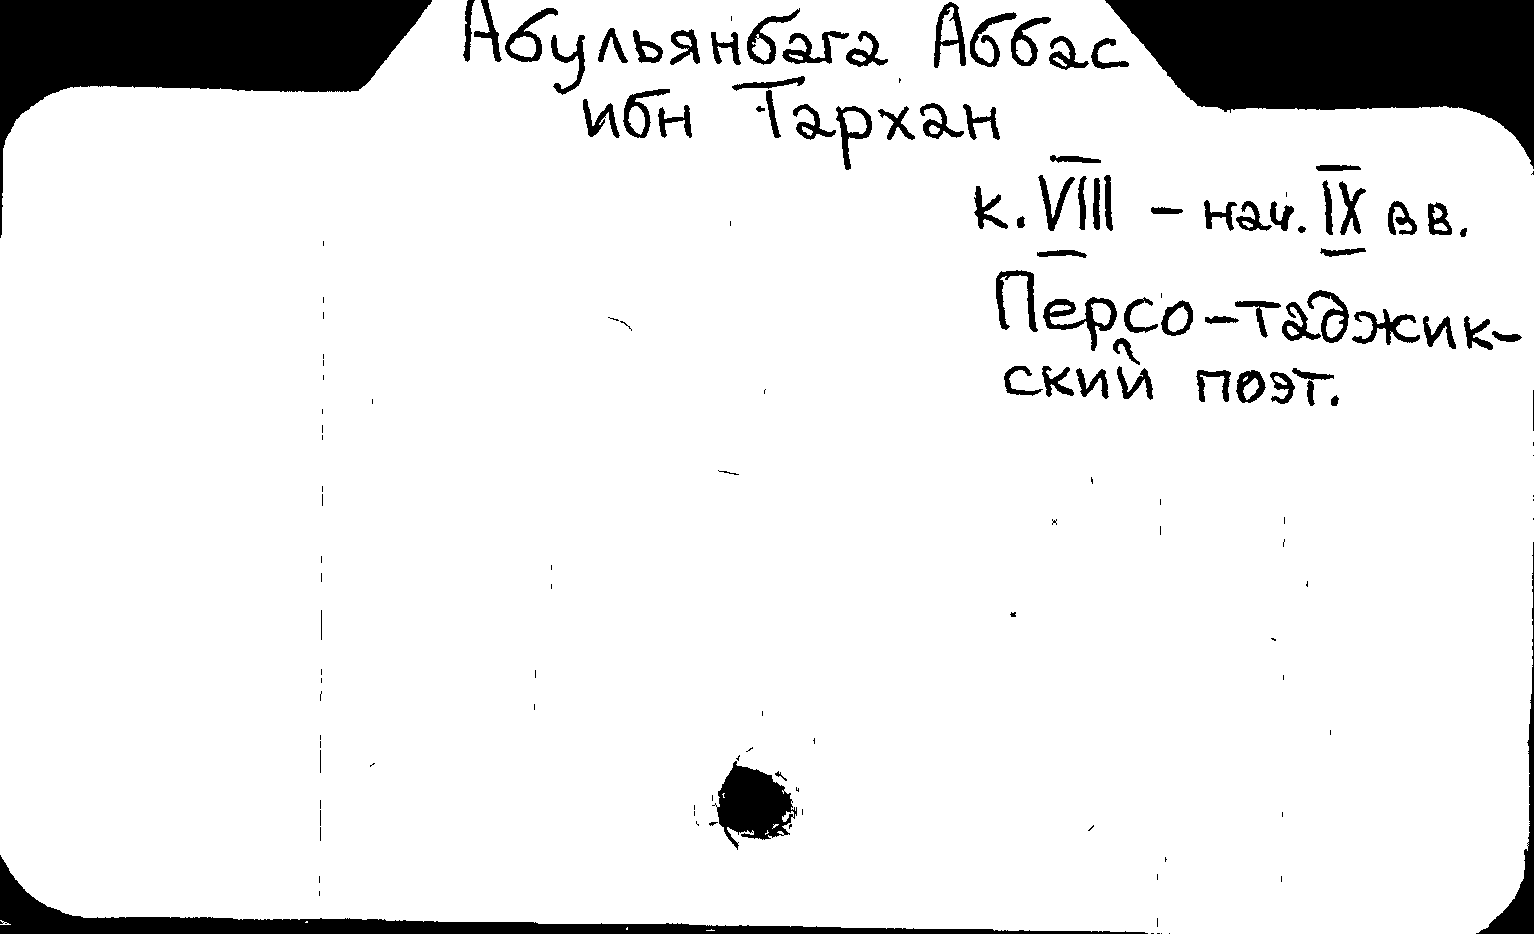 Абульянбага Аббас
ибн Тархан
к. VIII – нач. IX вв.
Персо-таджик-
ский поэт.